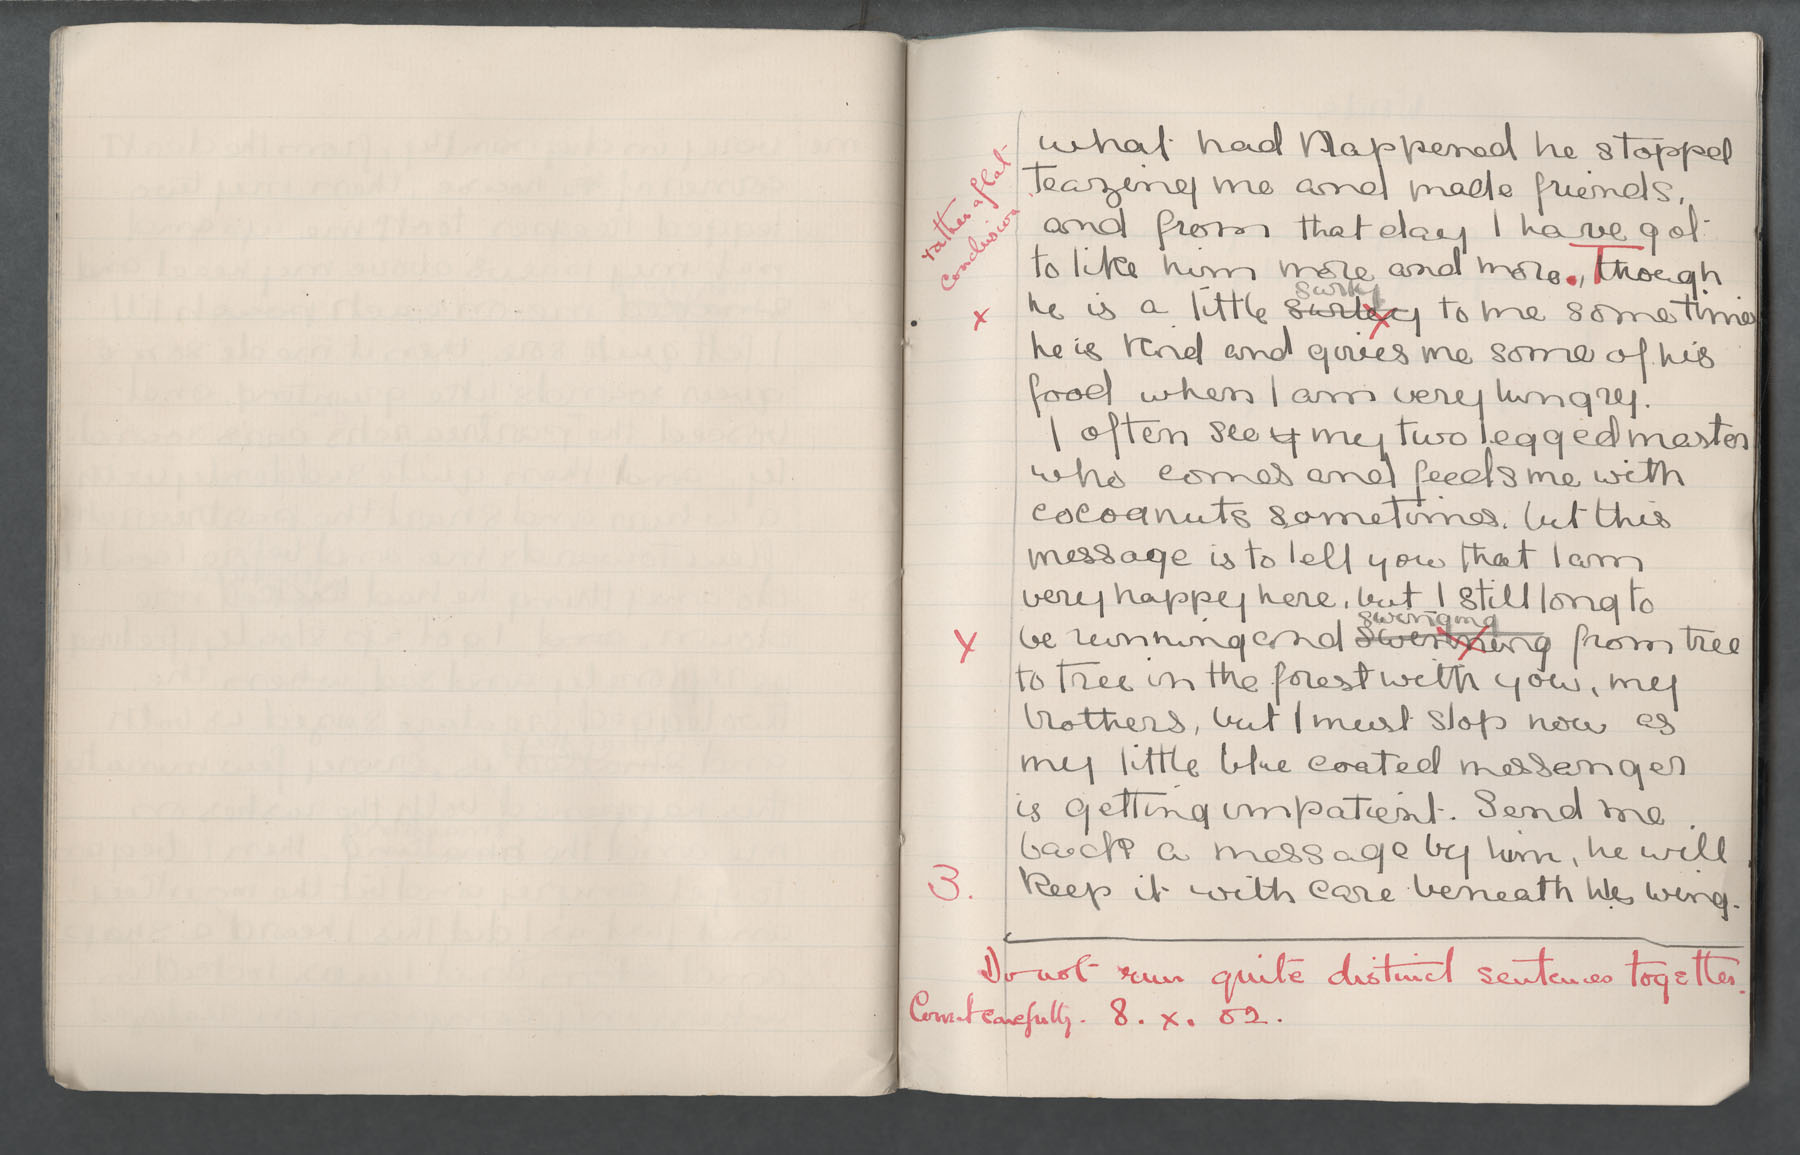 what had Happened he stopped
teazeing me and made friends,
and from that day I have got
to like him more and more., Though
sulky
he is a little sulkey to me sometimes
he is kind and gives me some of his
food when I am very hungry.
I often see my two legged master
who comes and feeds me with
cocoanuts sometimes, but this
message is to tell you that I am
very happy here, but I still long to
swinging
be running and swinning from tree
to tree in the forest with you, my
brothers, but I must stop now as
my little blue coated messenger
is getting impatient. Send me
back a message by him, he will
keep it with care beneath his wing.
rather a flat
conclusion.
x
x
3.
Do not run quite distinct sentences together.
Correct carefully. 8. x. 02.